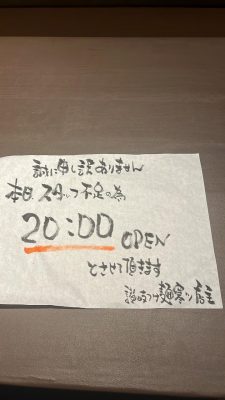 誠に申し訳ありません
本日スタッフ不足の為
20:00 OPEN
とさせて頂きます
つけ麺 店主